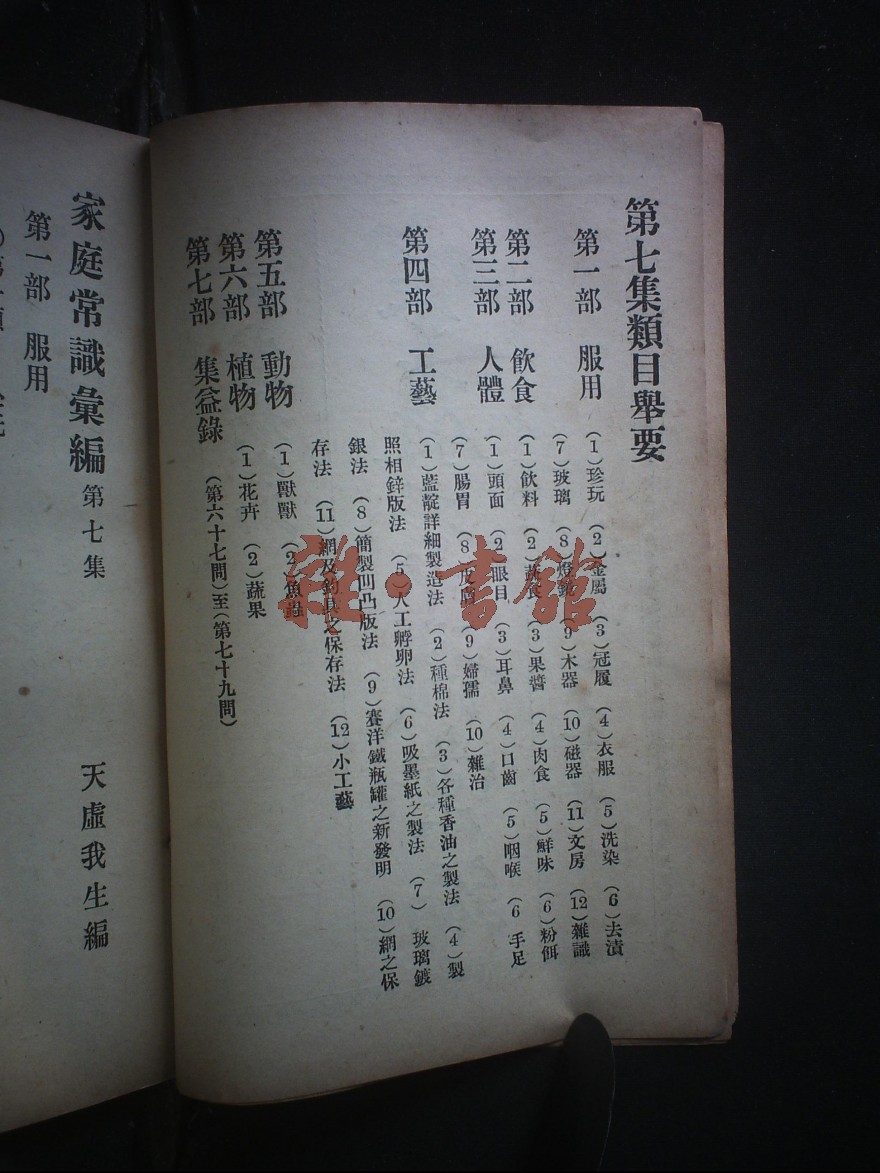 第七集類目舉要
第一部 服用 (1)珍玩 (2)金屬 (3)冠履 (4)衣服 (5)洗染 (6)去漬
(7)玻璃 (8)燈鏡 (9)木器 (10)磁器 (11)文房 (12)雜識
第二部 飲食 (1)飲料 (2)蔬食 (3)果醬 (4)肉食 (5)鮮味 (6)粉餌
第三部 人體 (1)頭面 (2)眼目 (3)耳鼻 (4)口齒 (5)咽喉 (6 手足
(7)腸胃 (8)皮膚 (9)婦孺 (10)雜治
第四部 工藝 (1)藍靛詳細製造法 (2)種棉法 (3)各種香油之製法 (4)製
照相鋅版法 (5)人工孵卵法 (6)吸墨紙之製法 (7) 玻璃鍍
銀法 (8)簡製凹凸版法 (9)賽洋鐵瓶罐之新發明 (10)網之保
存法 (11)網及釣具之保存法 (12)小工藝
第五部 動物 (1)獸獸 (2)魚蟲
第六部 植物 (1)花卉 (2)蔬果
第七部 集益錄 (第六十七問)至(第七十九問)
家庭常識彙編 第七集 天虛我生編
第一部 服用
雜·書館